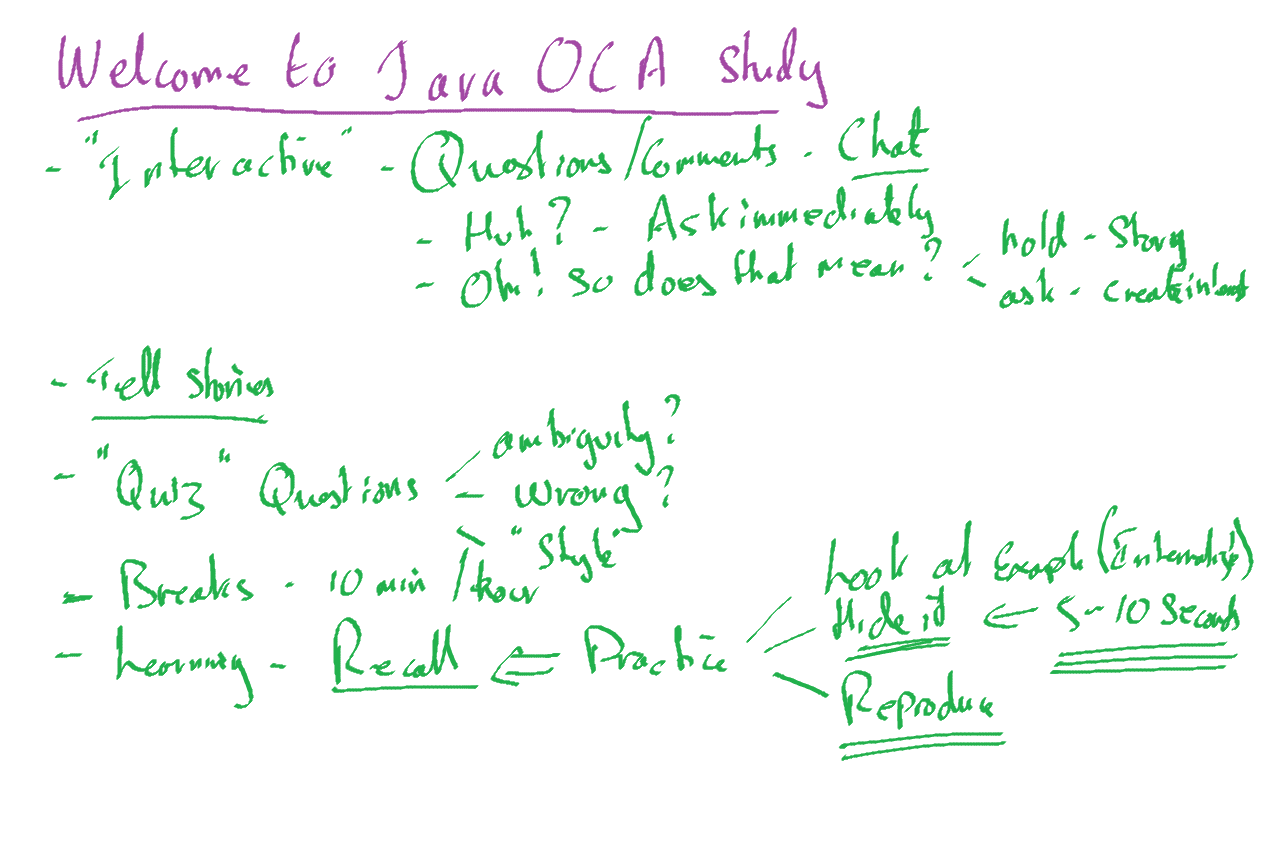 Welcome to Java OCA study
- "Interactive" - Questions/Comments - Chat
- Huh? - Ask immediately
- Oh! so does that mean?
hold - Story
ask - create interest
- Tell stories
- "Quiz" Questions
ambiguity?
- Wrong?
"Style"
- Breaks - 10 min / hour
- Learning - Recall ⇐ Practice
Look at Example (Internalize)
Hide it ⇐ 5-10 Seconds
Reproduce